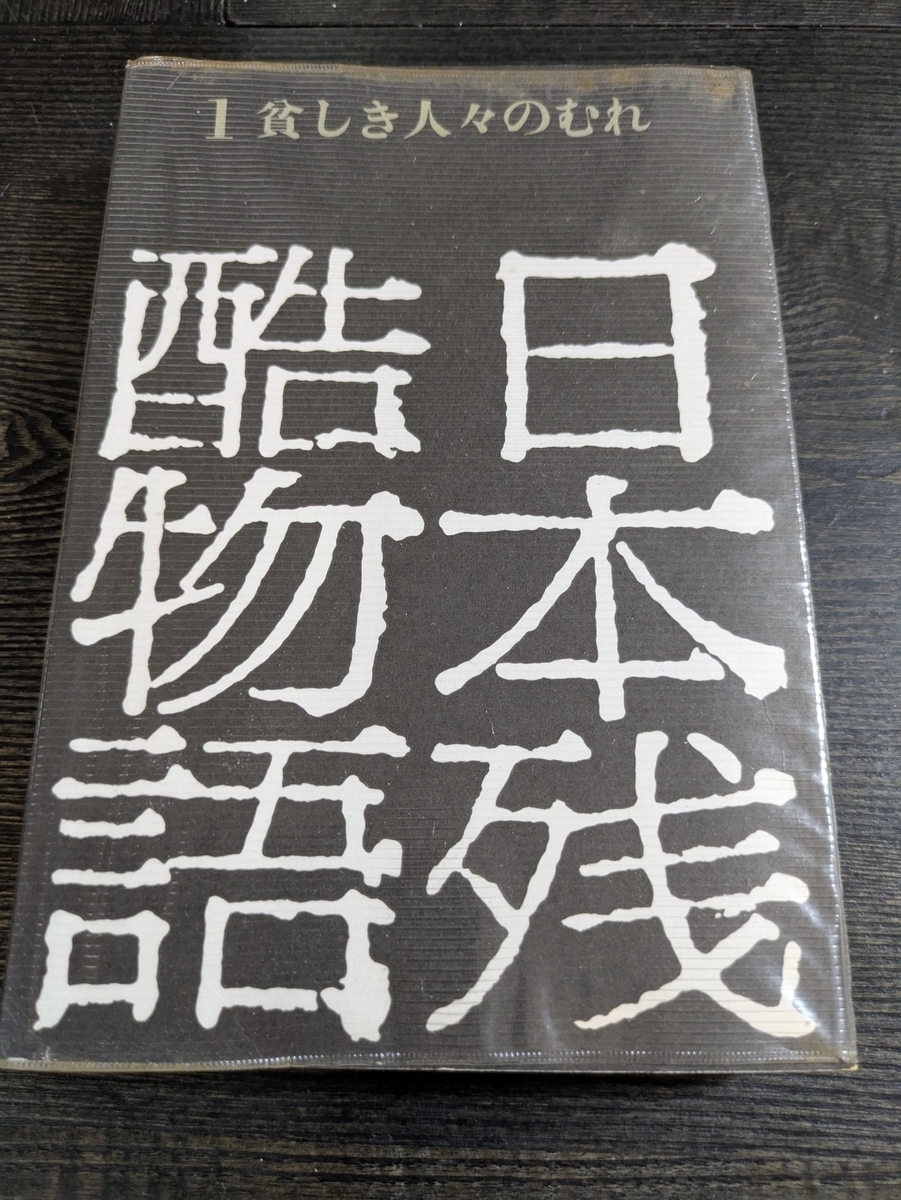 1 貧しき人々のむれ
日本残
酷物語